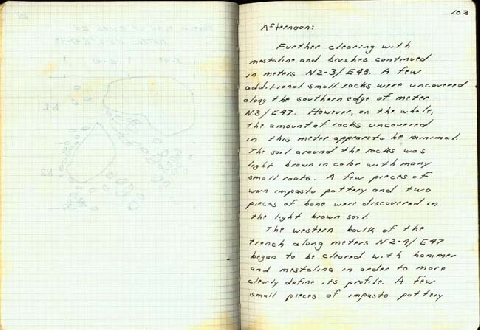 103
Afternoon:
Further clearing with
mestolino and brushes continued
in meters N2-3/E48. A few
additional small rocks were uncovered
along the southern edge of meter
N3/E47. However, on the whole,
the amount of rocks uncovered
in this meter appears to be minimal.
The soil around the rocks was
light brown in color with many
small roots. A few pieces of
worn impasto pottery and two
pieces of bone were discovered in
the light brown soil.
The western baulk of the
trench along meters N2-4/E47
began to be cleared with hammer
and mestolino in order to more
clearly define its profile. A few
small pieces of impasto pottery